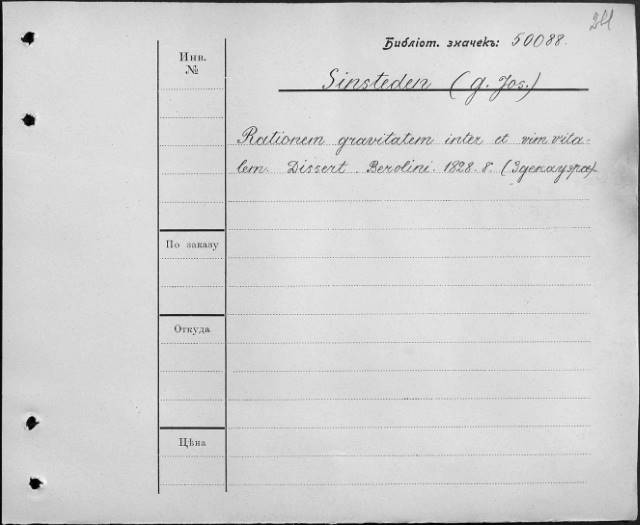 211
Библіот. значекъ: 50088.
Инв.
№
Sinsteden (G. Jos.)
Rationem gravitatem inter et vim vita-
lem. Dissert. Berolini. 1828. 8. (3 экземпляра)
По заказу
Откуда
Цѣна